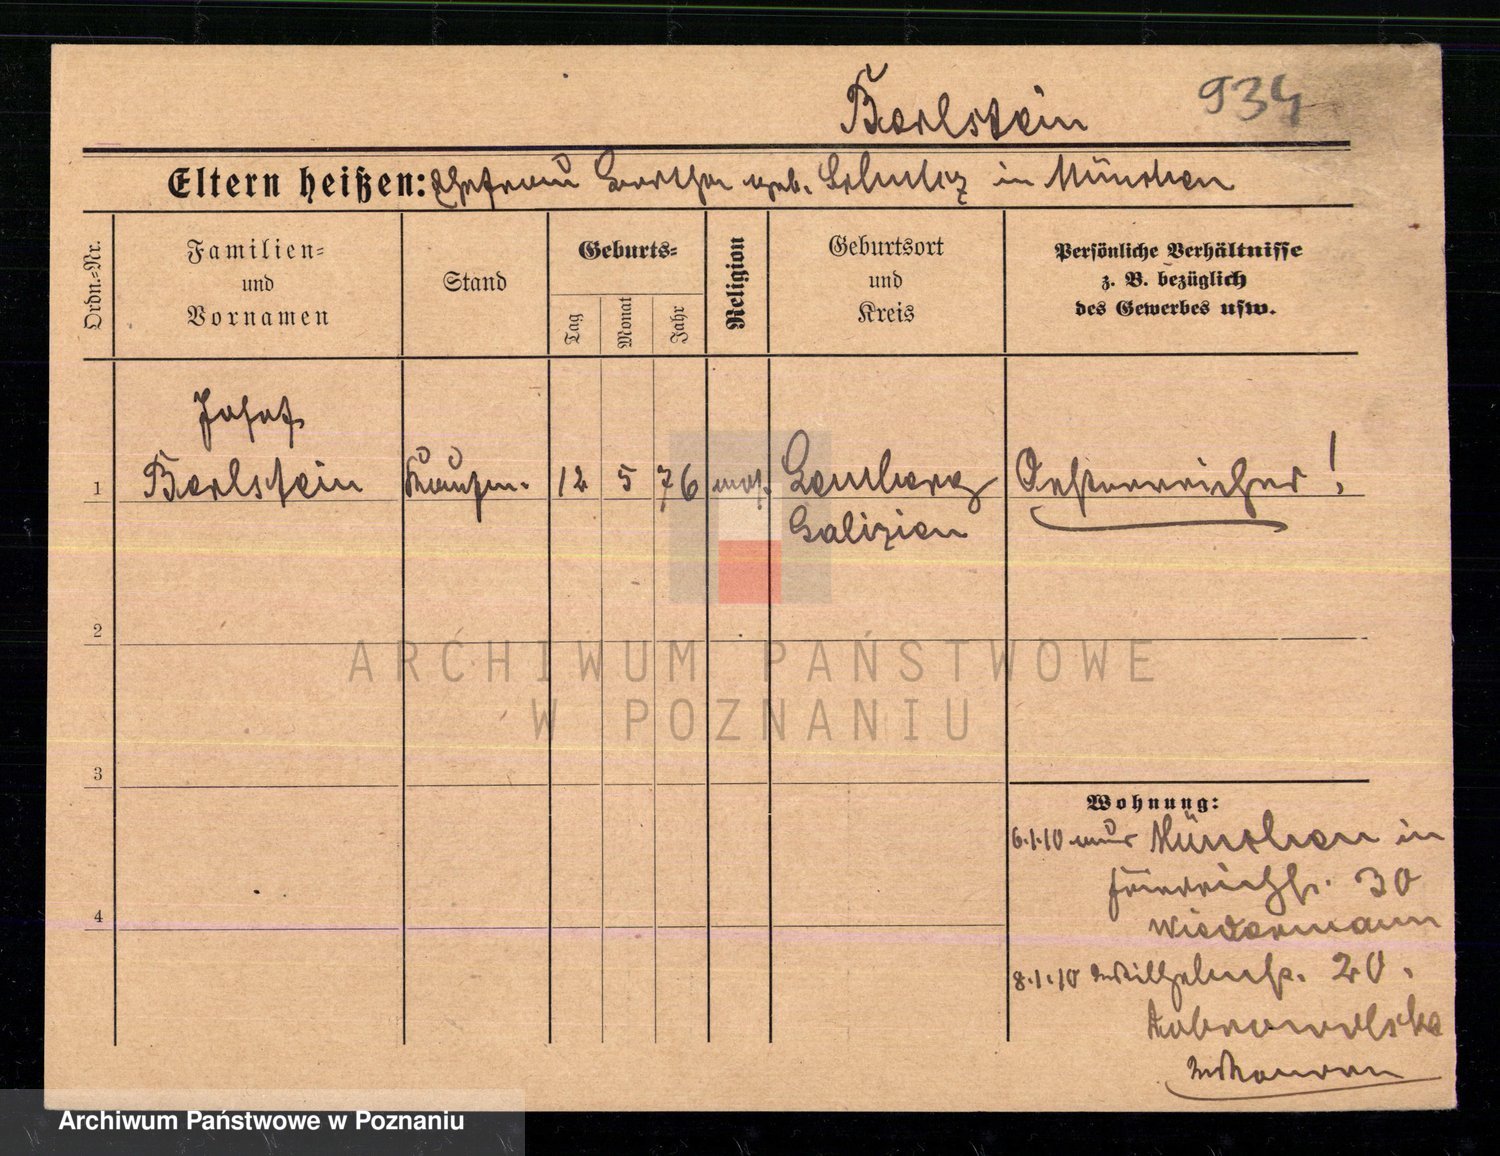 Barlstein 934
Eltern heißen: Ehefrau Bertha geb. Schulz in München
Ordn.-Nr.
Familien-
und
Vornamen
Stand
Geburts-
Tag
Monat
Jahr
Religion
Geburtsort
und
Kreis
Persönliche Verhältnisse
z. B. bezüglich
des Gewerbes usw.
Josef
1 Barlstein Kaufm. 12 5 76 mos. Lemberg Oesterreicher!
Galizien
2
3
4
Wohnung:
6.1.10 aus München in
30
Wiedermann
8.1.10 Wilhelmstr. 20.
Dobrowolska
ARCHIWUM PAŃSTWOWE
W POZNANIU
Archiwum Państwowe w Poznaniu